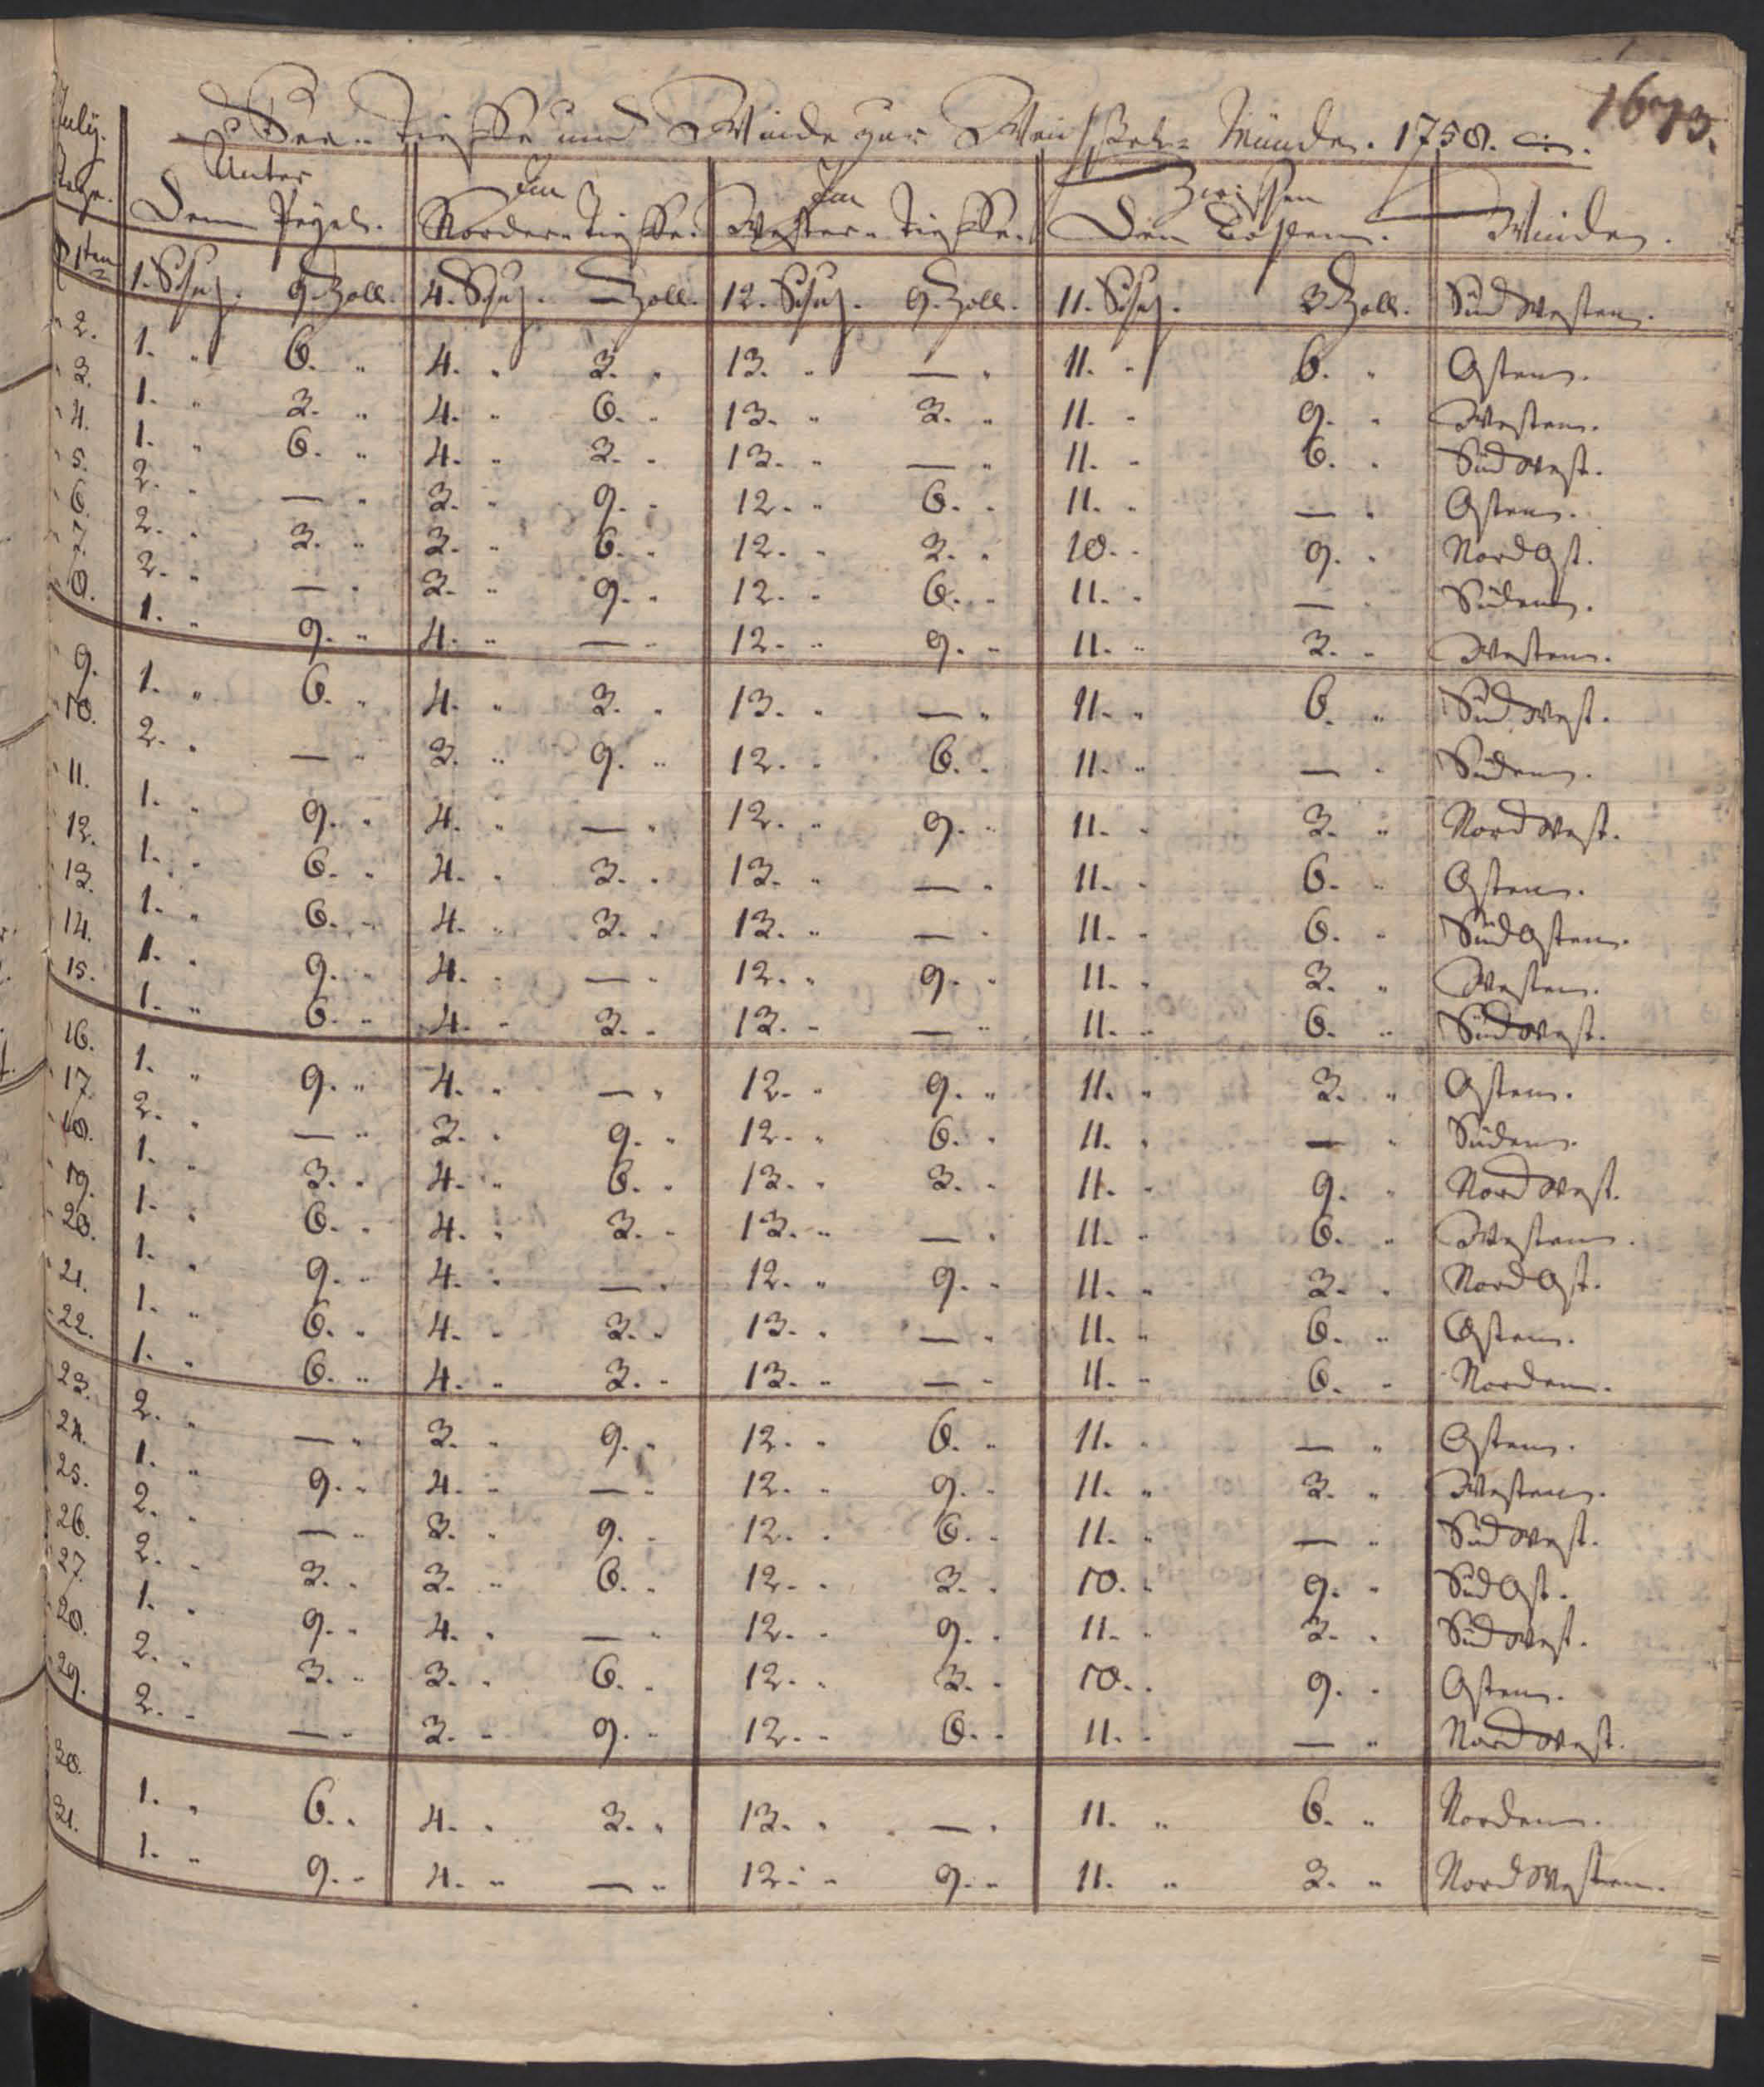 1673.
See= Tieffe und Winde zur Weichsel= Münde. 1758.
July. Tage. Unter Dem Pegel. Im Norder= Tieffe. Im Wester= Tieffe. Zwischen Den Winden.
1sten 1. Schuh. 9. Zoll. 4. Schuh. — Zoll. 12. Schuh. 9. Zoll. 11. Schuh. 3. Zoll. Süd Westen.
2. 1. " 6. " 4. " 3. " 13. " — " 11. " 6. " Osten.
3. 1. " 3. " 4. " 6. " 13. " 3. " 11. " 9. " Westen.
4. 1. " 6. " 4. " 3. " 13. " — " 11. " 6. " Süd West.
5. 2. " — " 3. " 9. " 12. " 6. " 11. " — " Osten.
6. 2. " 3. " 3. " 6. " 12. " 3. " 10. " 9. " Nord Ost.
7. 2. " — " 3. " 9. " 12. " 6. " 11. " — " Süden.
8. 1. " 9. " 4. " — " 12. " 9. " 11. " 3. " Westen.
9. 1. " 6. " 4. " 3. " 13. " — " 11. " 6. " Süd West.
10. 2. " — " 3. " 9. " 12. " 6. " 11. " — " Süden.
11. 1. " 9. " 4. " — " 12. " 9. " 11. " 3. " Nord West.
12. 1. " 6. " 4. " 3. " 13. " — " 11. " 6. " Osten.
13. 1. " 6. " 4. " 3. " 13. " — " 11. " 6. " Süd Osten.
14. 1. " 9. " 4. " — " 12. " 9. " 11. " 3. " Westen.
15. 1. " 6. " 4. " 3. " 13. " — " 11. " 6. " Süd West.
16. 1. " 9. " 4. " — " 12. " 9. " 11. " 3. " Osten.
17. 2. " — " 3. " 9. " 12. " 6. " 11. " — " Süden.
18. 1. " 3. " 4. " 6. " 13. " 3. " 11. " 9. " Nord West.
19. 1. " 6. " 4. " 3. " 13. " — " 11. " 6. " Westen.
20. 1. " 9. " 4. " — " 12. " 9. " 11. " 3. " Nord Ost.
21. 1. " 6. " 4. " 3. " 13. " — " 11. " 6. " Osten.
22. 1. " 6. " 4. " 3. " 13. " — " 11. " 6. " Norden.
23. 2. " — " 3. " 9. " 12. " 6. " 11. " — " Osten.
24. 1. " 9. " 4. " — " 12. " 9. " 11. " 3. " Westen.
25. 2. " — " 3. " 9. " 12. " 6. " 11. " — " Süd West.
26. 2. " 3. " 3. " 6. " 12. " 3. " 10. " 9. " Süd Ost.
27. 1. " 9. " 4. " — " 12. " 9. " 11. " 3. " Süd West.
28. 2. " 3. " 3. " 6. " 12. " 3. " 10. " 9. " Osten.
29. 2. " — " 3. " 9. " 12. " 6. " 11. " — " Nord West.
30. 1. " 6. " 4. " 3. " 13. " — " 11. " 6. " Norden.
31. 1. " 9. " 4. " — " 12. " 9. " 11. " 3. " Nord Westen.